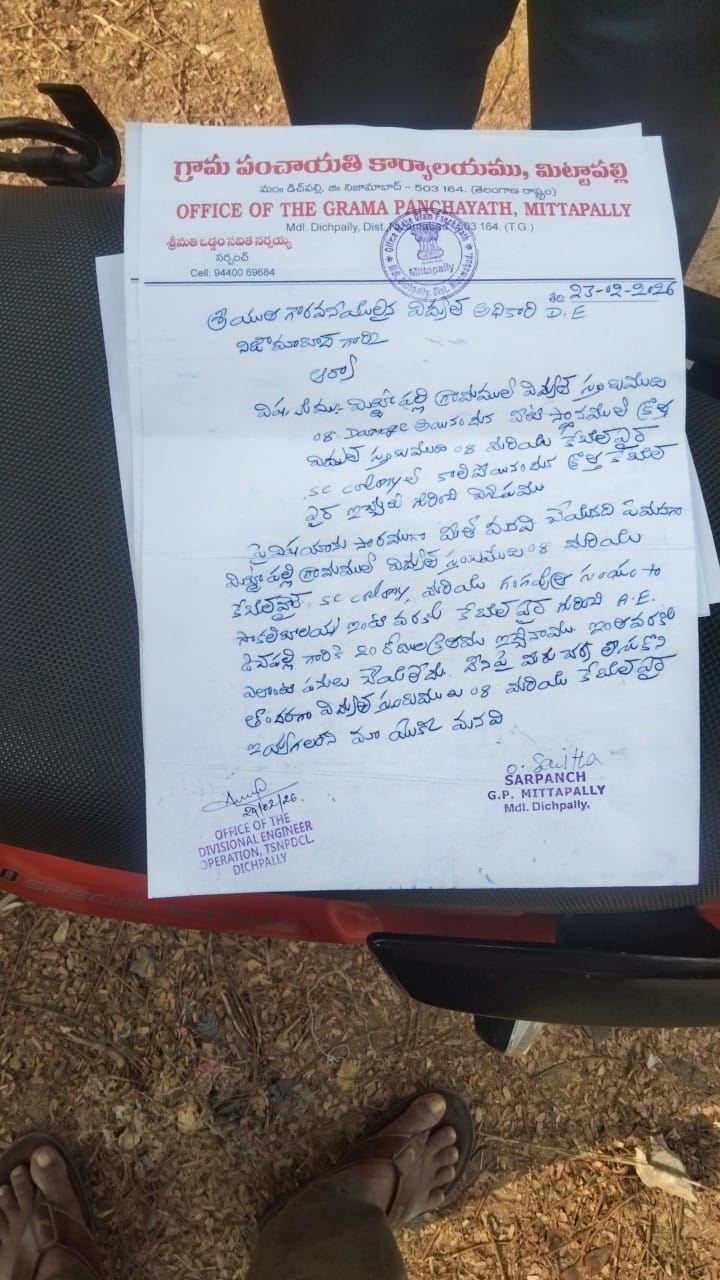 గ్రామ పంచాయతి కార్యాలయము, మిట్టాపల్లి
మం: డిచ్‌పల్లి, జి: నిజామాబాద్ - 503 164. (తెలంగాణ రాష్ట్రం)
OFFICE OF THE GRAMA PANCHAYATH, MITTAPALLY
Mdl. Dichpally, Dist. Nizamabad-503 164. (T.G.)
శ్రీమతి ఒడ్డం సవిత నర్సయ్య
సర్పంచ్
Cell: 94400 69684
Office of the Gram Panchayath
Mittapally
Mdl. Dichpally, Dist. Nizamabad.
తేది: 23-02-2026
శ్రీయుత గౌరవనీయులైన విద్యుత్ అధికారి D.E
నిజామాబాద్ గారికి
ఆర్యా
విషయము: మిట్టాపల్లి గ్రామములో విద్యుత్ స్తంబములు
08 Damage అయినందున వాటి స్థానములో క్రొత్త
విద్యుత్ స్తంబములు 08 మరియు కేబుల్ వైర్
SC colony లో కాలిపోయినందున క్రొత్త కేబుల్
వైర్ ఇచ్చుట గురించి
పై విషయాను సారముగా మీతో మనవి చేయునది ఏమనగా
మిట్టాపల్లి గ్రామములో విద్యుత్ స్తంబములు 08 మరియు
కేబుల్ వైర్ SC colony, మరియు గంగపుత్ర సంఘం to
సాకలి ఇంటి వరకు కేబుల్ వైర్ గురించి A.E.
డిచ్‌పల్లి గారికి 20 రోజుల క్రితము ఇచ్చినాము ఇంతవరకు
ఎలాంటి పనులు చేయలేదు. దీనిపై మీరు చర్య తీసుకొని
తొందరగా విద్యుత్ స్తంబములు 08 మరియు కేబుల్ వైర్
ఇవ్వగలరని మా యొక్క మనవి
O. Savitha
SARPANCH
G.P. MITTAPALLY
Mdl. Dichpally.
OFFICE OF THE
DIVISIONAL ENGINEER
OPERATION, TSNPDCL.
DICHPALLY
SPECIAL EDITION